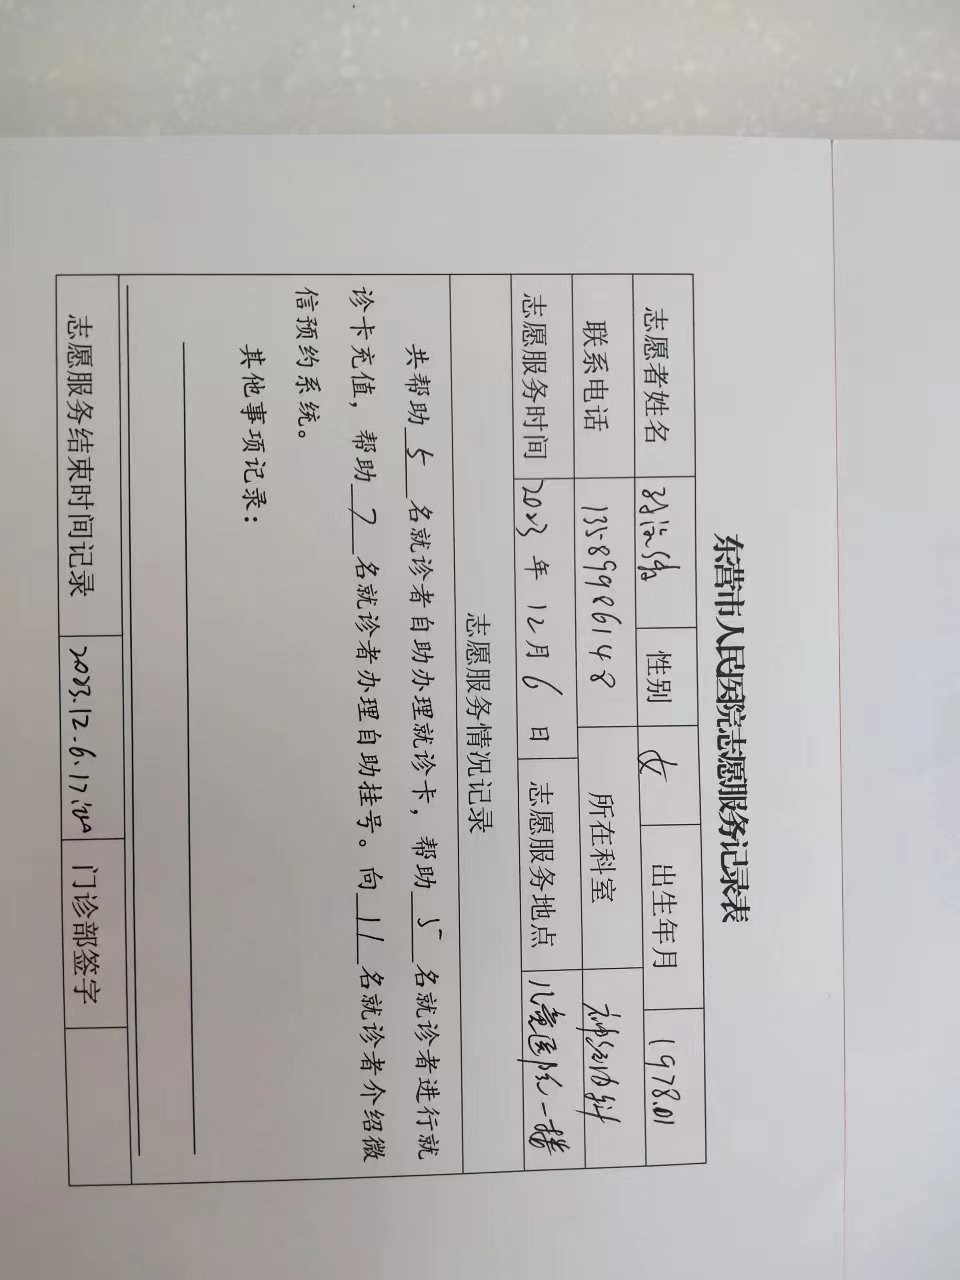 东营市人民医院志愿服务记录表
志愿者姓名 性别 女 出生年月 1978.01
联系电话 13589986148 所在科室 神经内科
志愿服务时间 2023 年 12 月 6 日 志愿服务地点 儿童医院一楼
志愿服务情况记录
共帮助 5 名就诊者自助办理就诊卡，帮助 5 名就诊者进行就
诊卡充值，帮助 7 名就诊者办理自助挂号。向 11 名就诊者介绍微
信预约系统。
其他事项记录：
志愿服务结束时间记录 2023.12.6.17: 门诊部签字